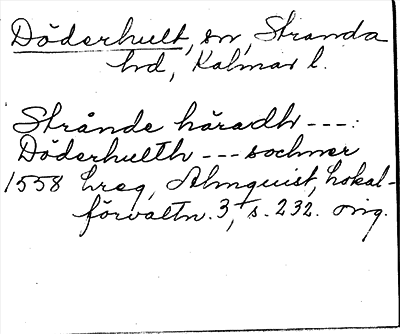 Döderhult, sn, Stranda
hd, Kalmar l.
Strånde häradh ---:
Döderhullth --- sochner
1558 hreg, Almquist, Lokal-
förvaltn. 3, s. 232. orig.